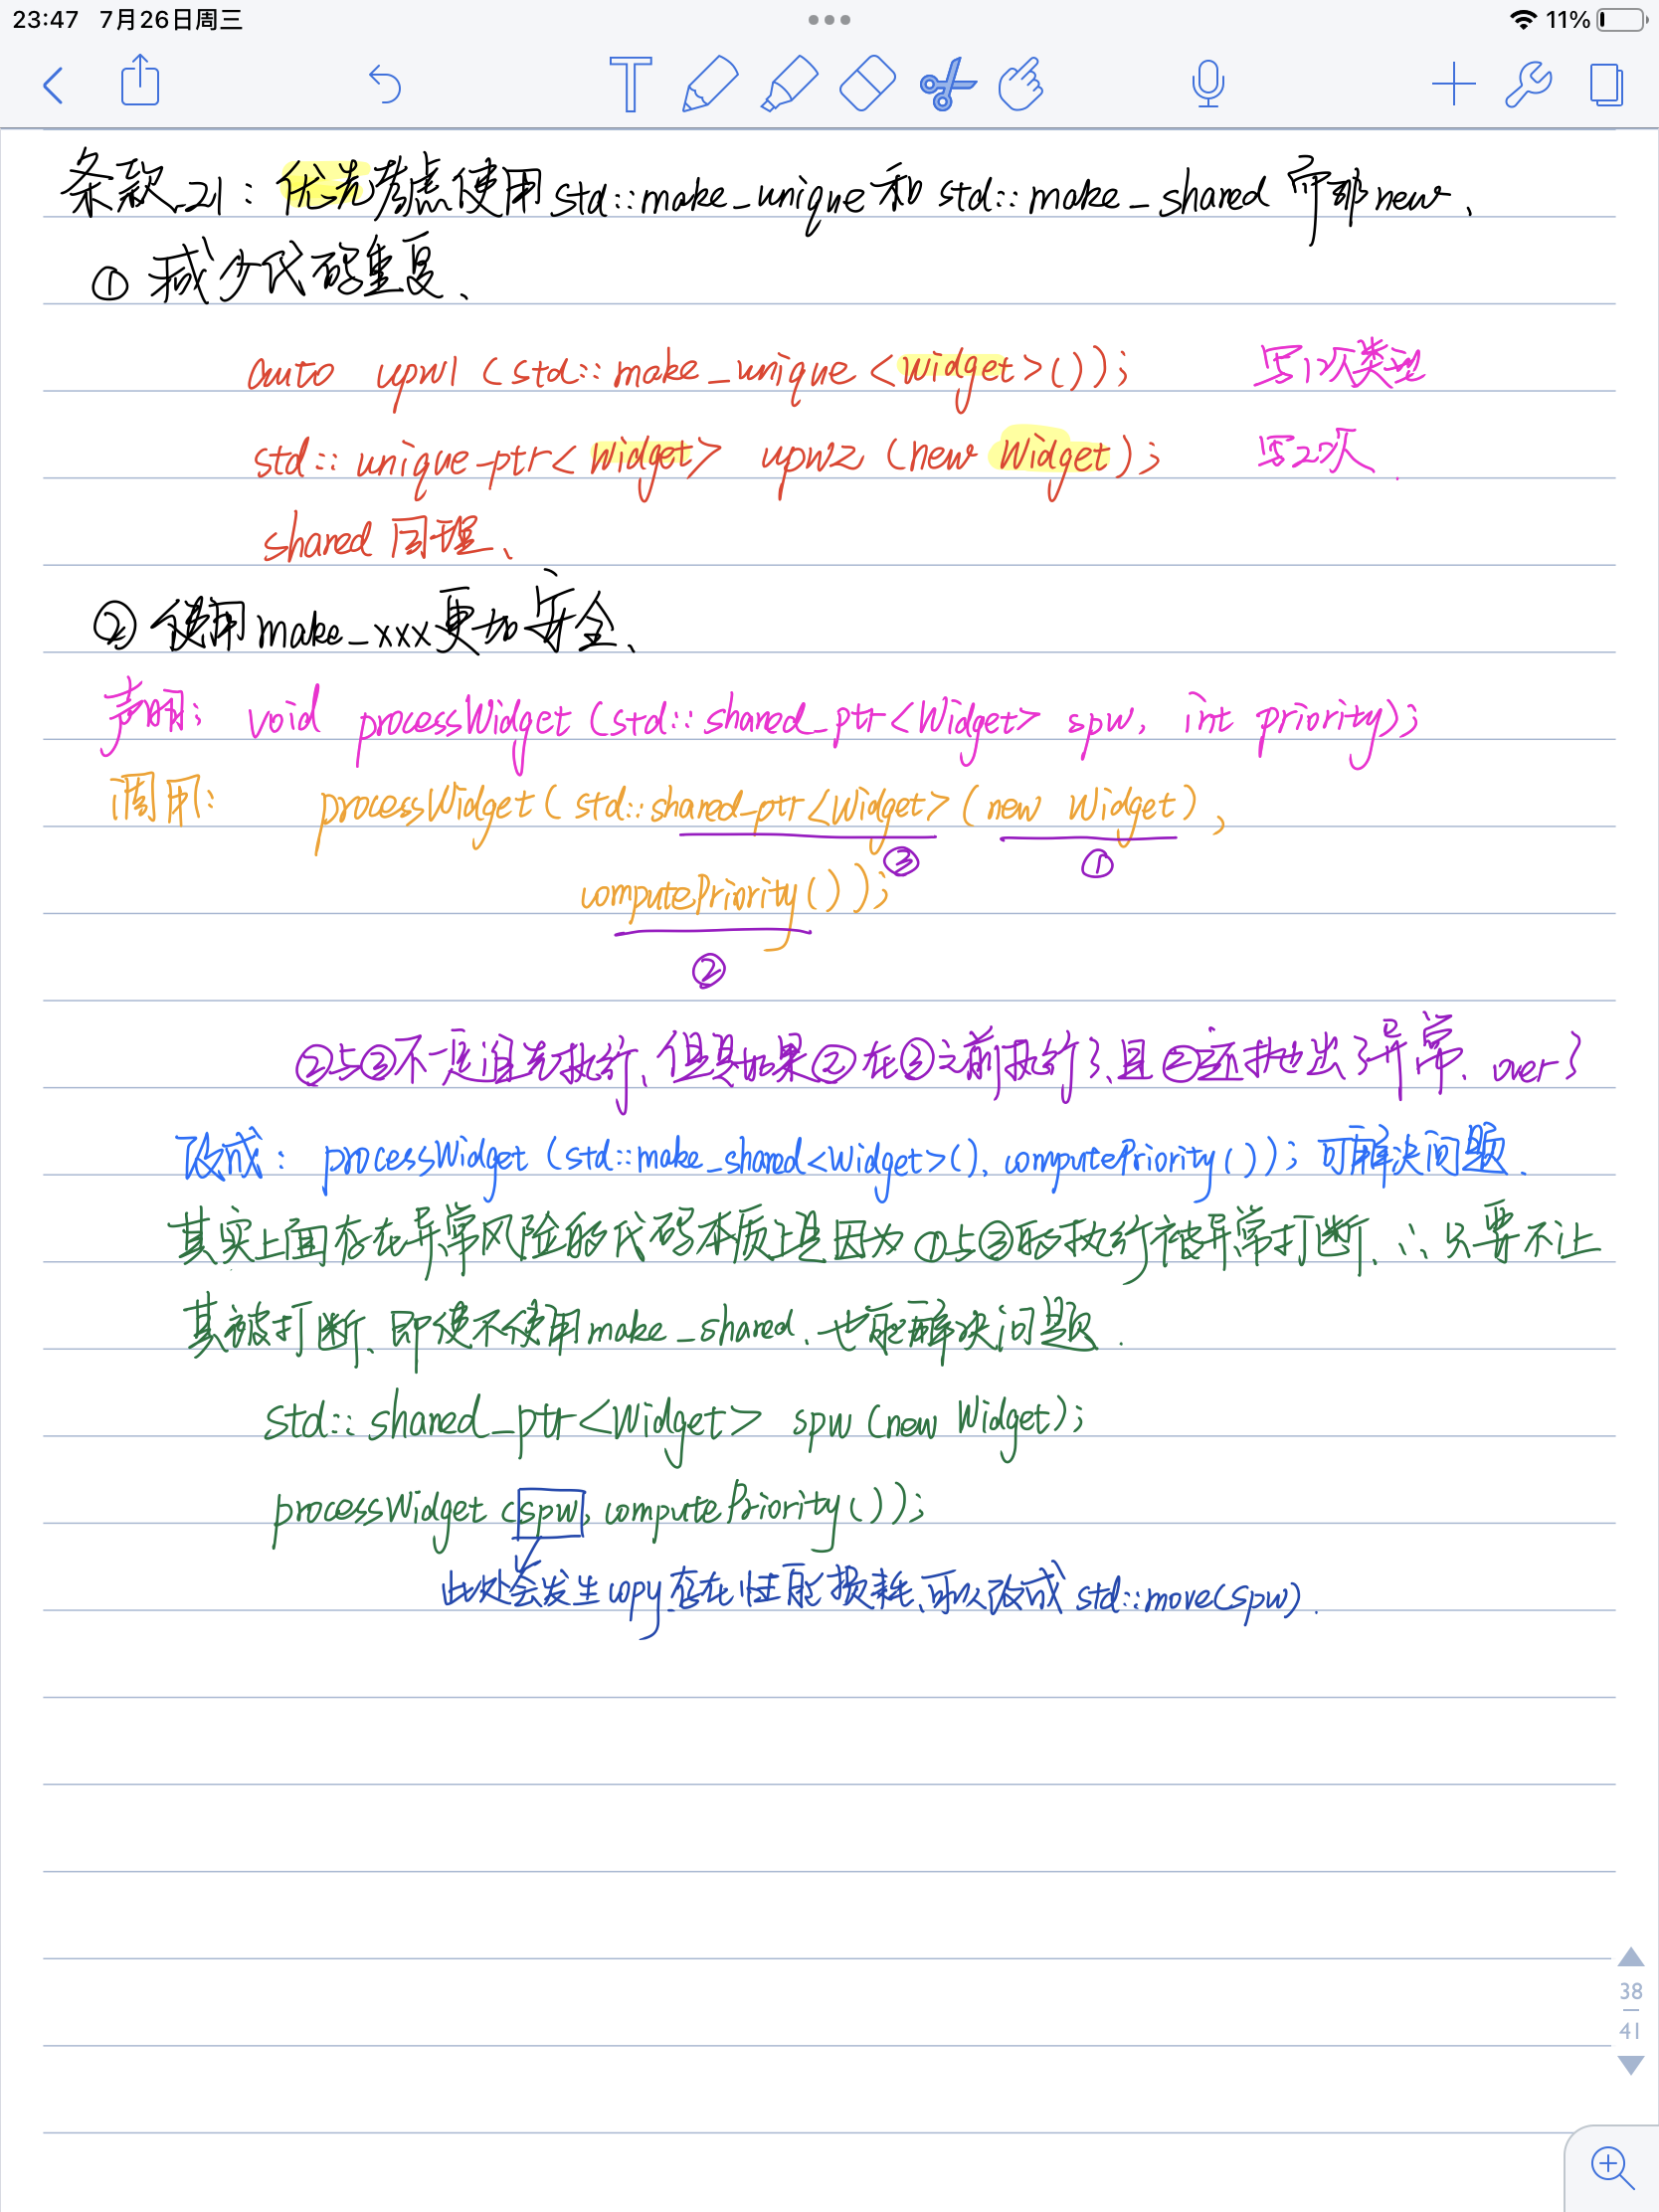 23:47 7月26日周三 11%
条款21：优先考虑使用std::make_unique和std::make_shared而非new、
① 减少代码重复、
auto upw1 (std::make_unique<Widget>()); 写1次类型
std::unique_ptr<Widget> upw2 (new Widget); 写2次.
shared 同理、
② 使用make_xxx更加安全、
声明: void processWidget (std::shared_ptr<Widget> spw, int priority);
调用: processWidget ( std::shared_ptr<Widget> (new Widget),
③ ①
computePriority());
②
②与③不一定谁先执行、但是如果②在③之前执行了、且②还抛出了异常、over了
改成: processWidget (std::make_shared<Widget>(), computePriority()); 可解决问题.
其实上面存在异常风险的代码本质上是因为①与③的执行被异常打断、∴只要不让
其被打断、即使不使用make_shared、也能解决问题.
std::shared_ptr<Widget> spw (new Widget);
processWidget (spw, computePriority());
此处会发生copy存在性能损耗、可以改成 std::move(spw).
38
41